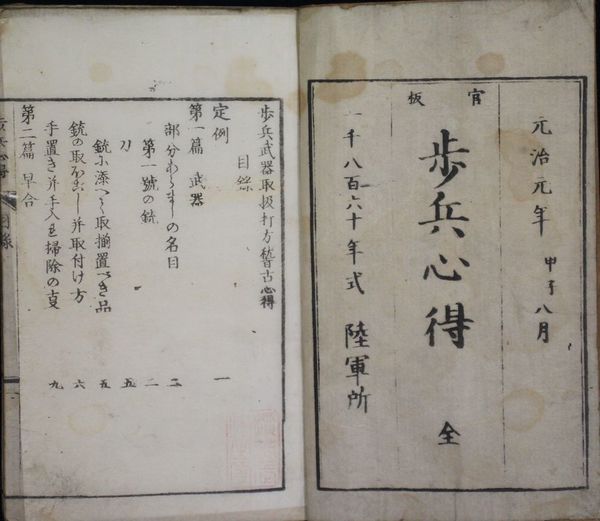 官板
元治元年 甲子八月
歩兵心得 全
一千八百六十年式 陸軍所
歩兵武器取扱打方稽古心得
目録
定例 一
第一篇 武器
部分あらましの名目 二
第一號の銃 二
刀 五
銃ふ添へて取揃置づき品 五
銃の取ほぐし并取付け方 六
手置き并手入れ掃除の事 九
第二篇 早合
歩兵心得 目録